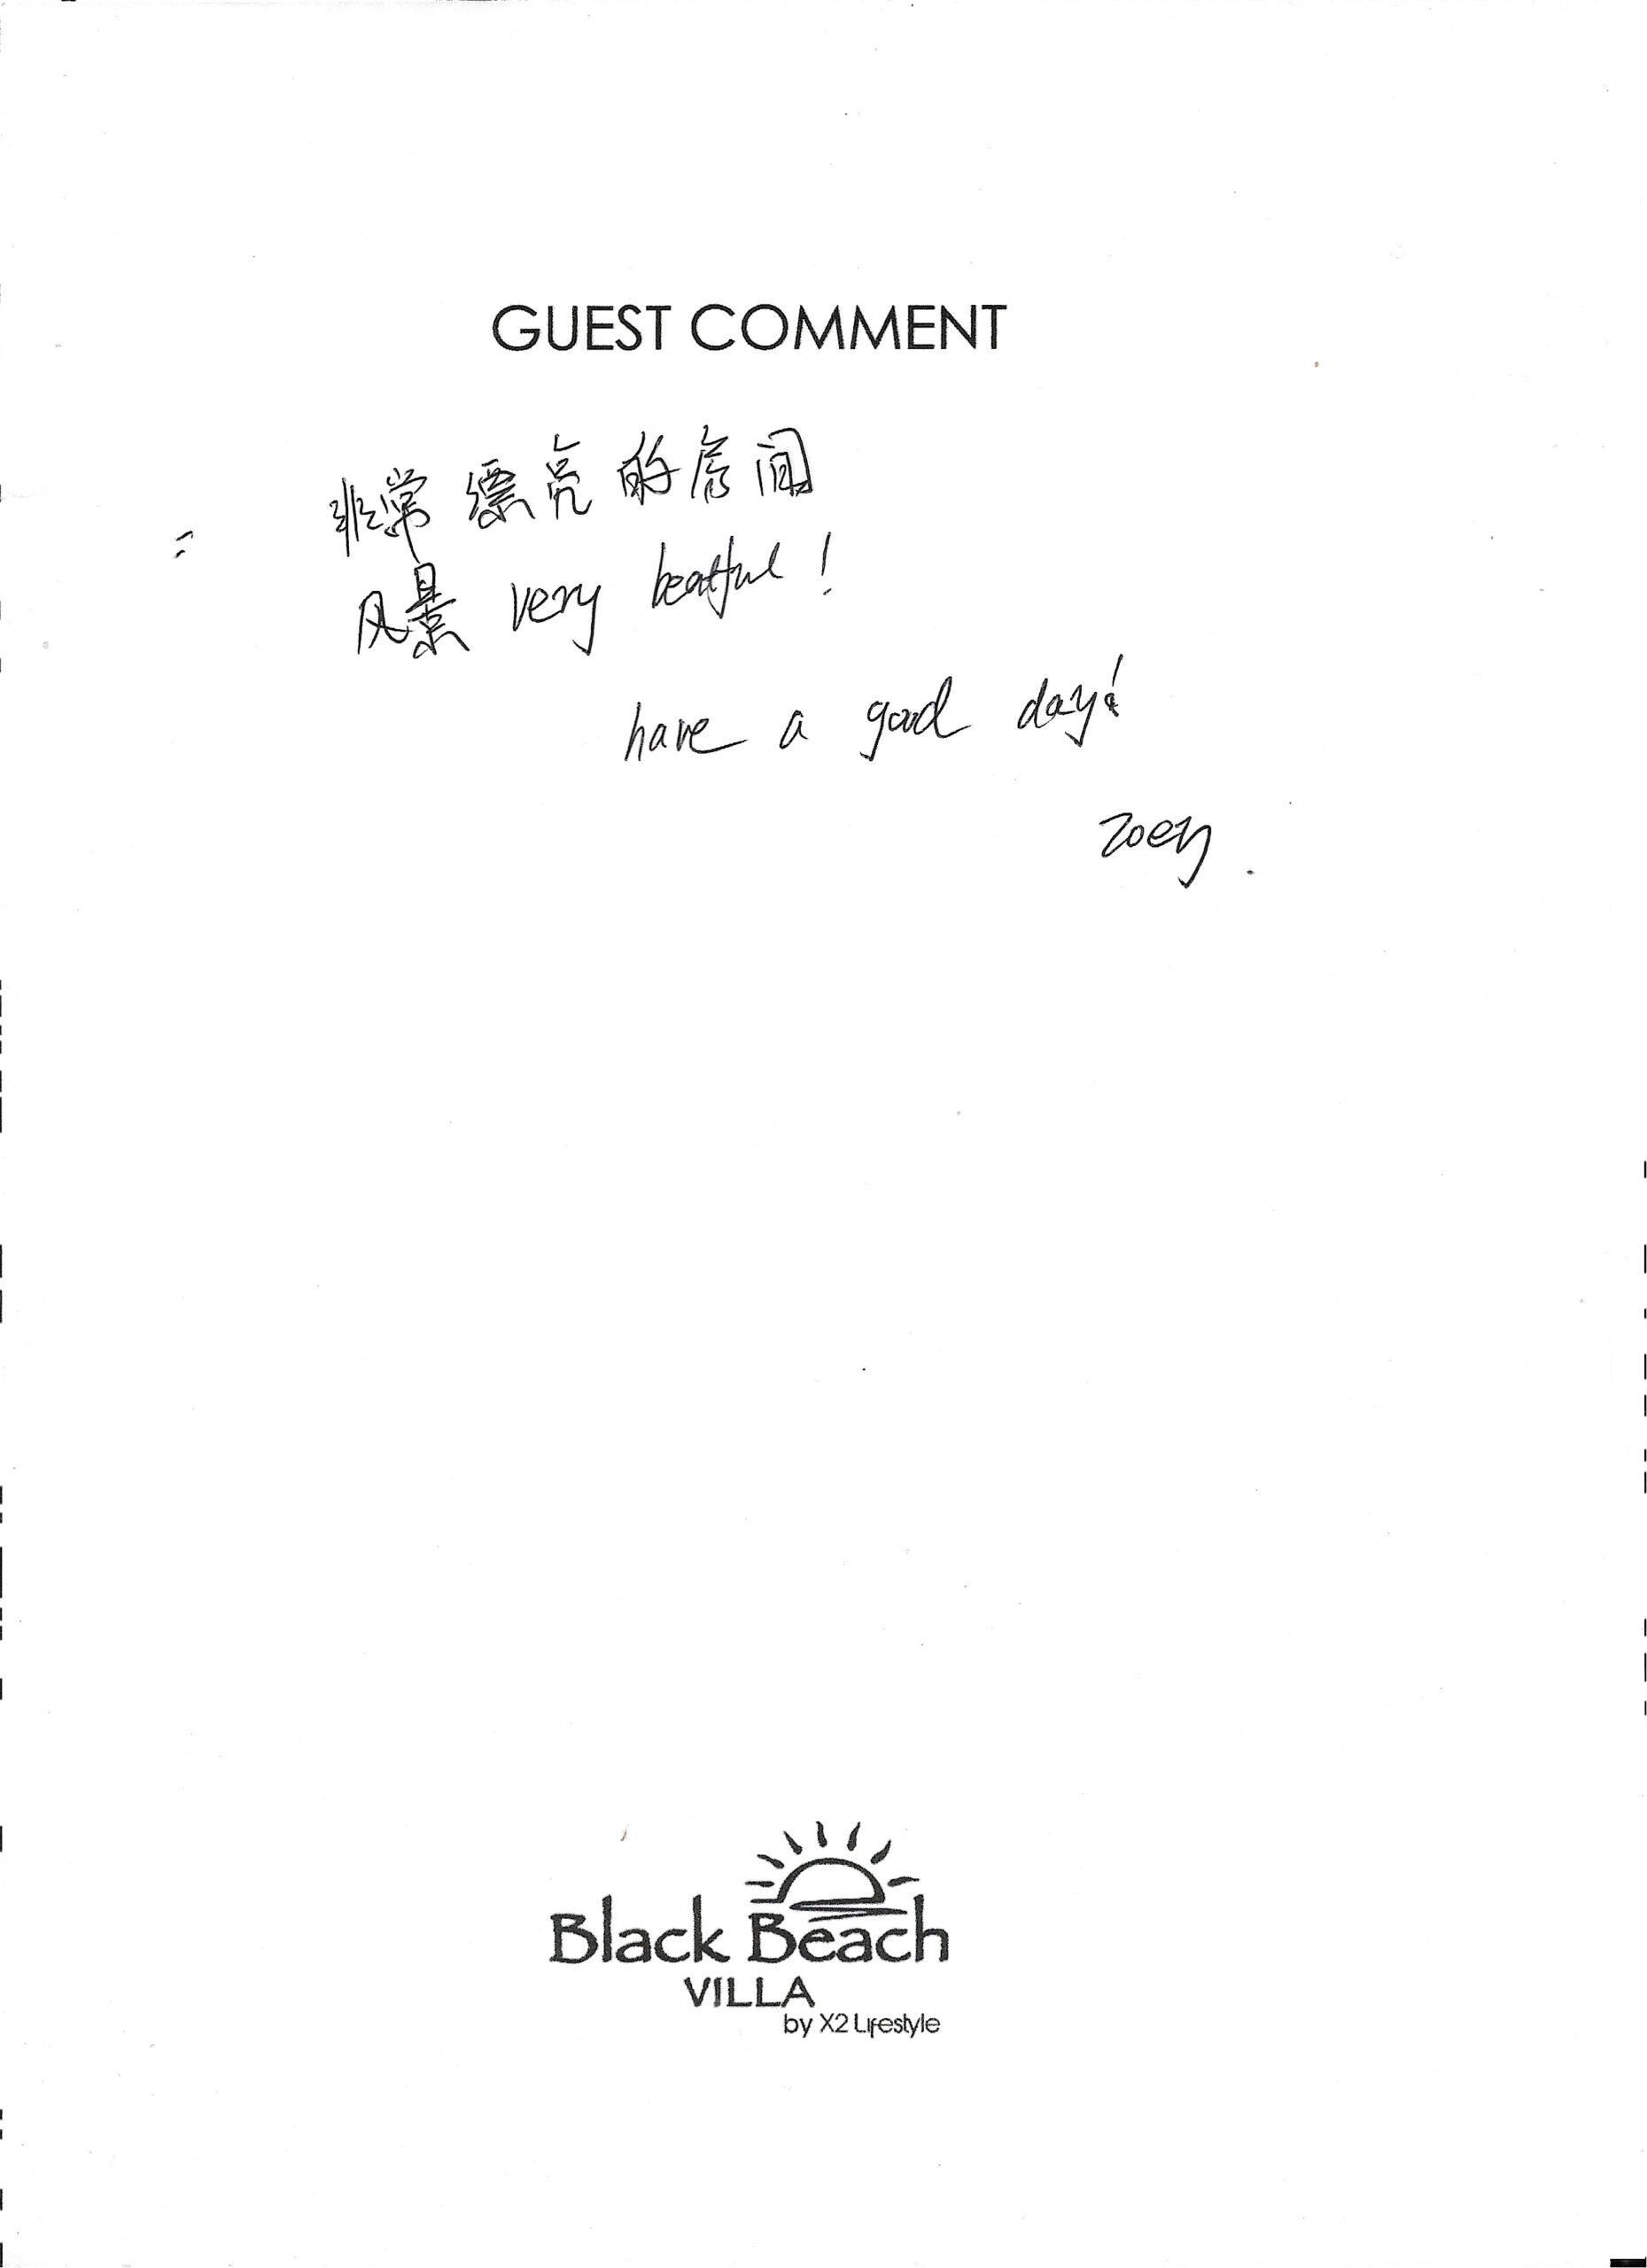 GUEST COMMENT
非常漂亮的房间
风景 very beatful!
have a good day!
Zoey.
Black Beach
VILLA
by X2 Lifestyle